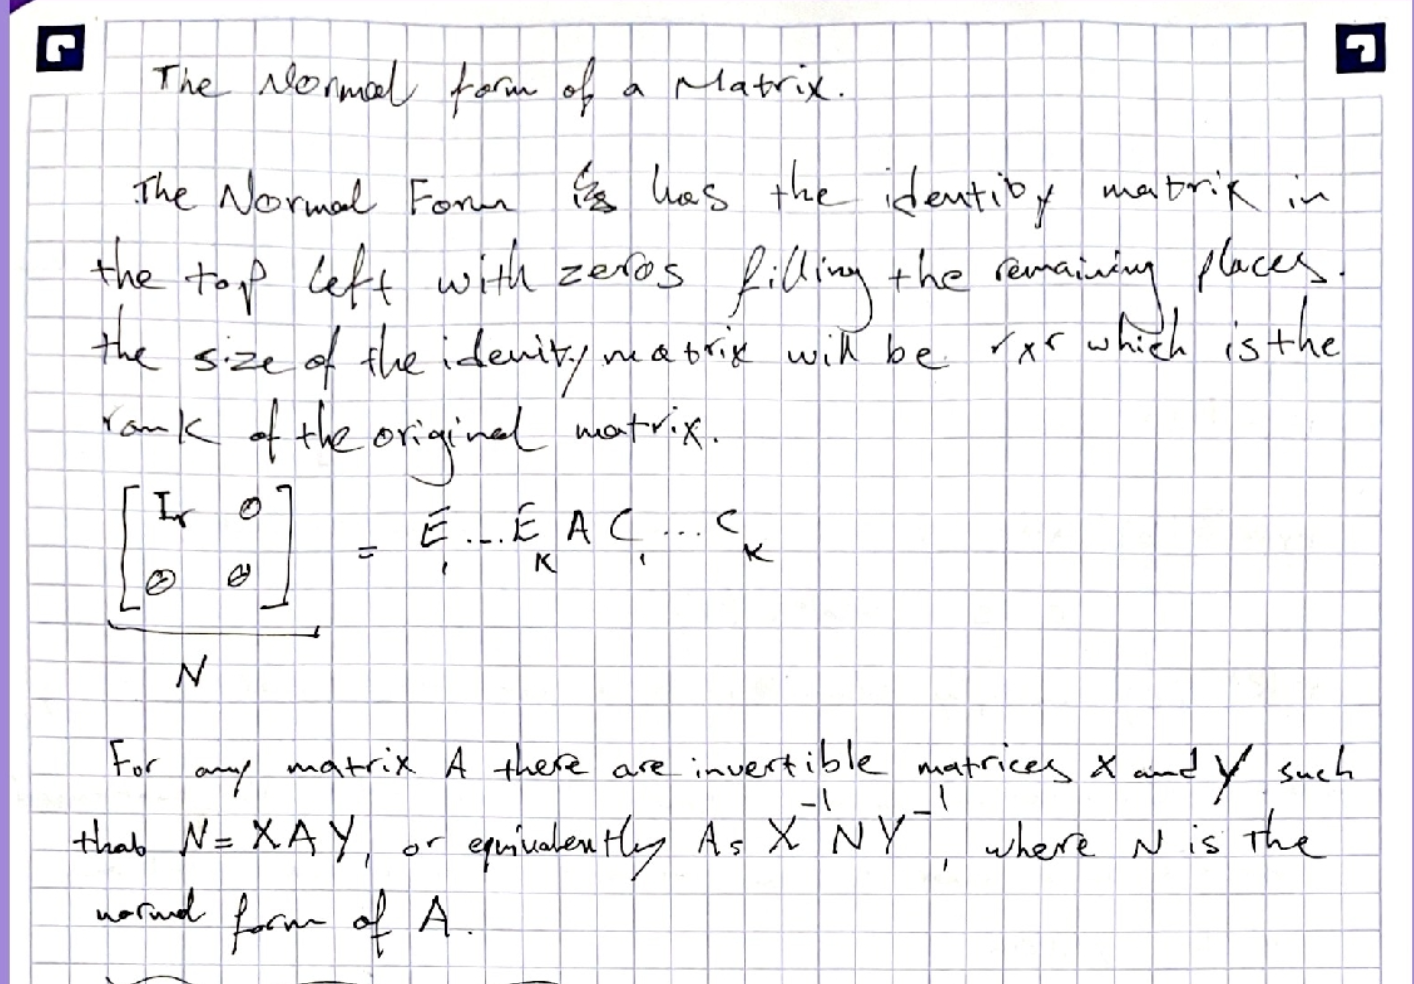 The Normal form of a Matrix.
The Normal Form has the identity matrix in
the top left with zeros filling the remaining places.
the size of the idenity matrix will be r×r which is the
rank of the original matrix.
[ Ir 0 ] = E1...EK A C1...CK
[ 0 0 ]
N
For any matrix A there are invertible matrices X and Y such
that N = XAY, or equivalently A = X^-1 N Y^-1, where N is the
normal form of A.